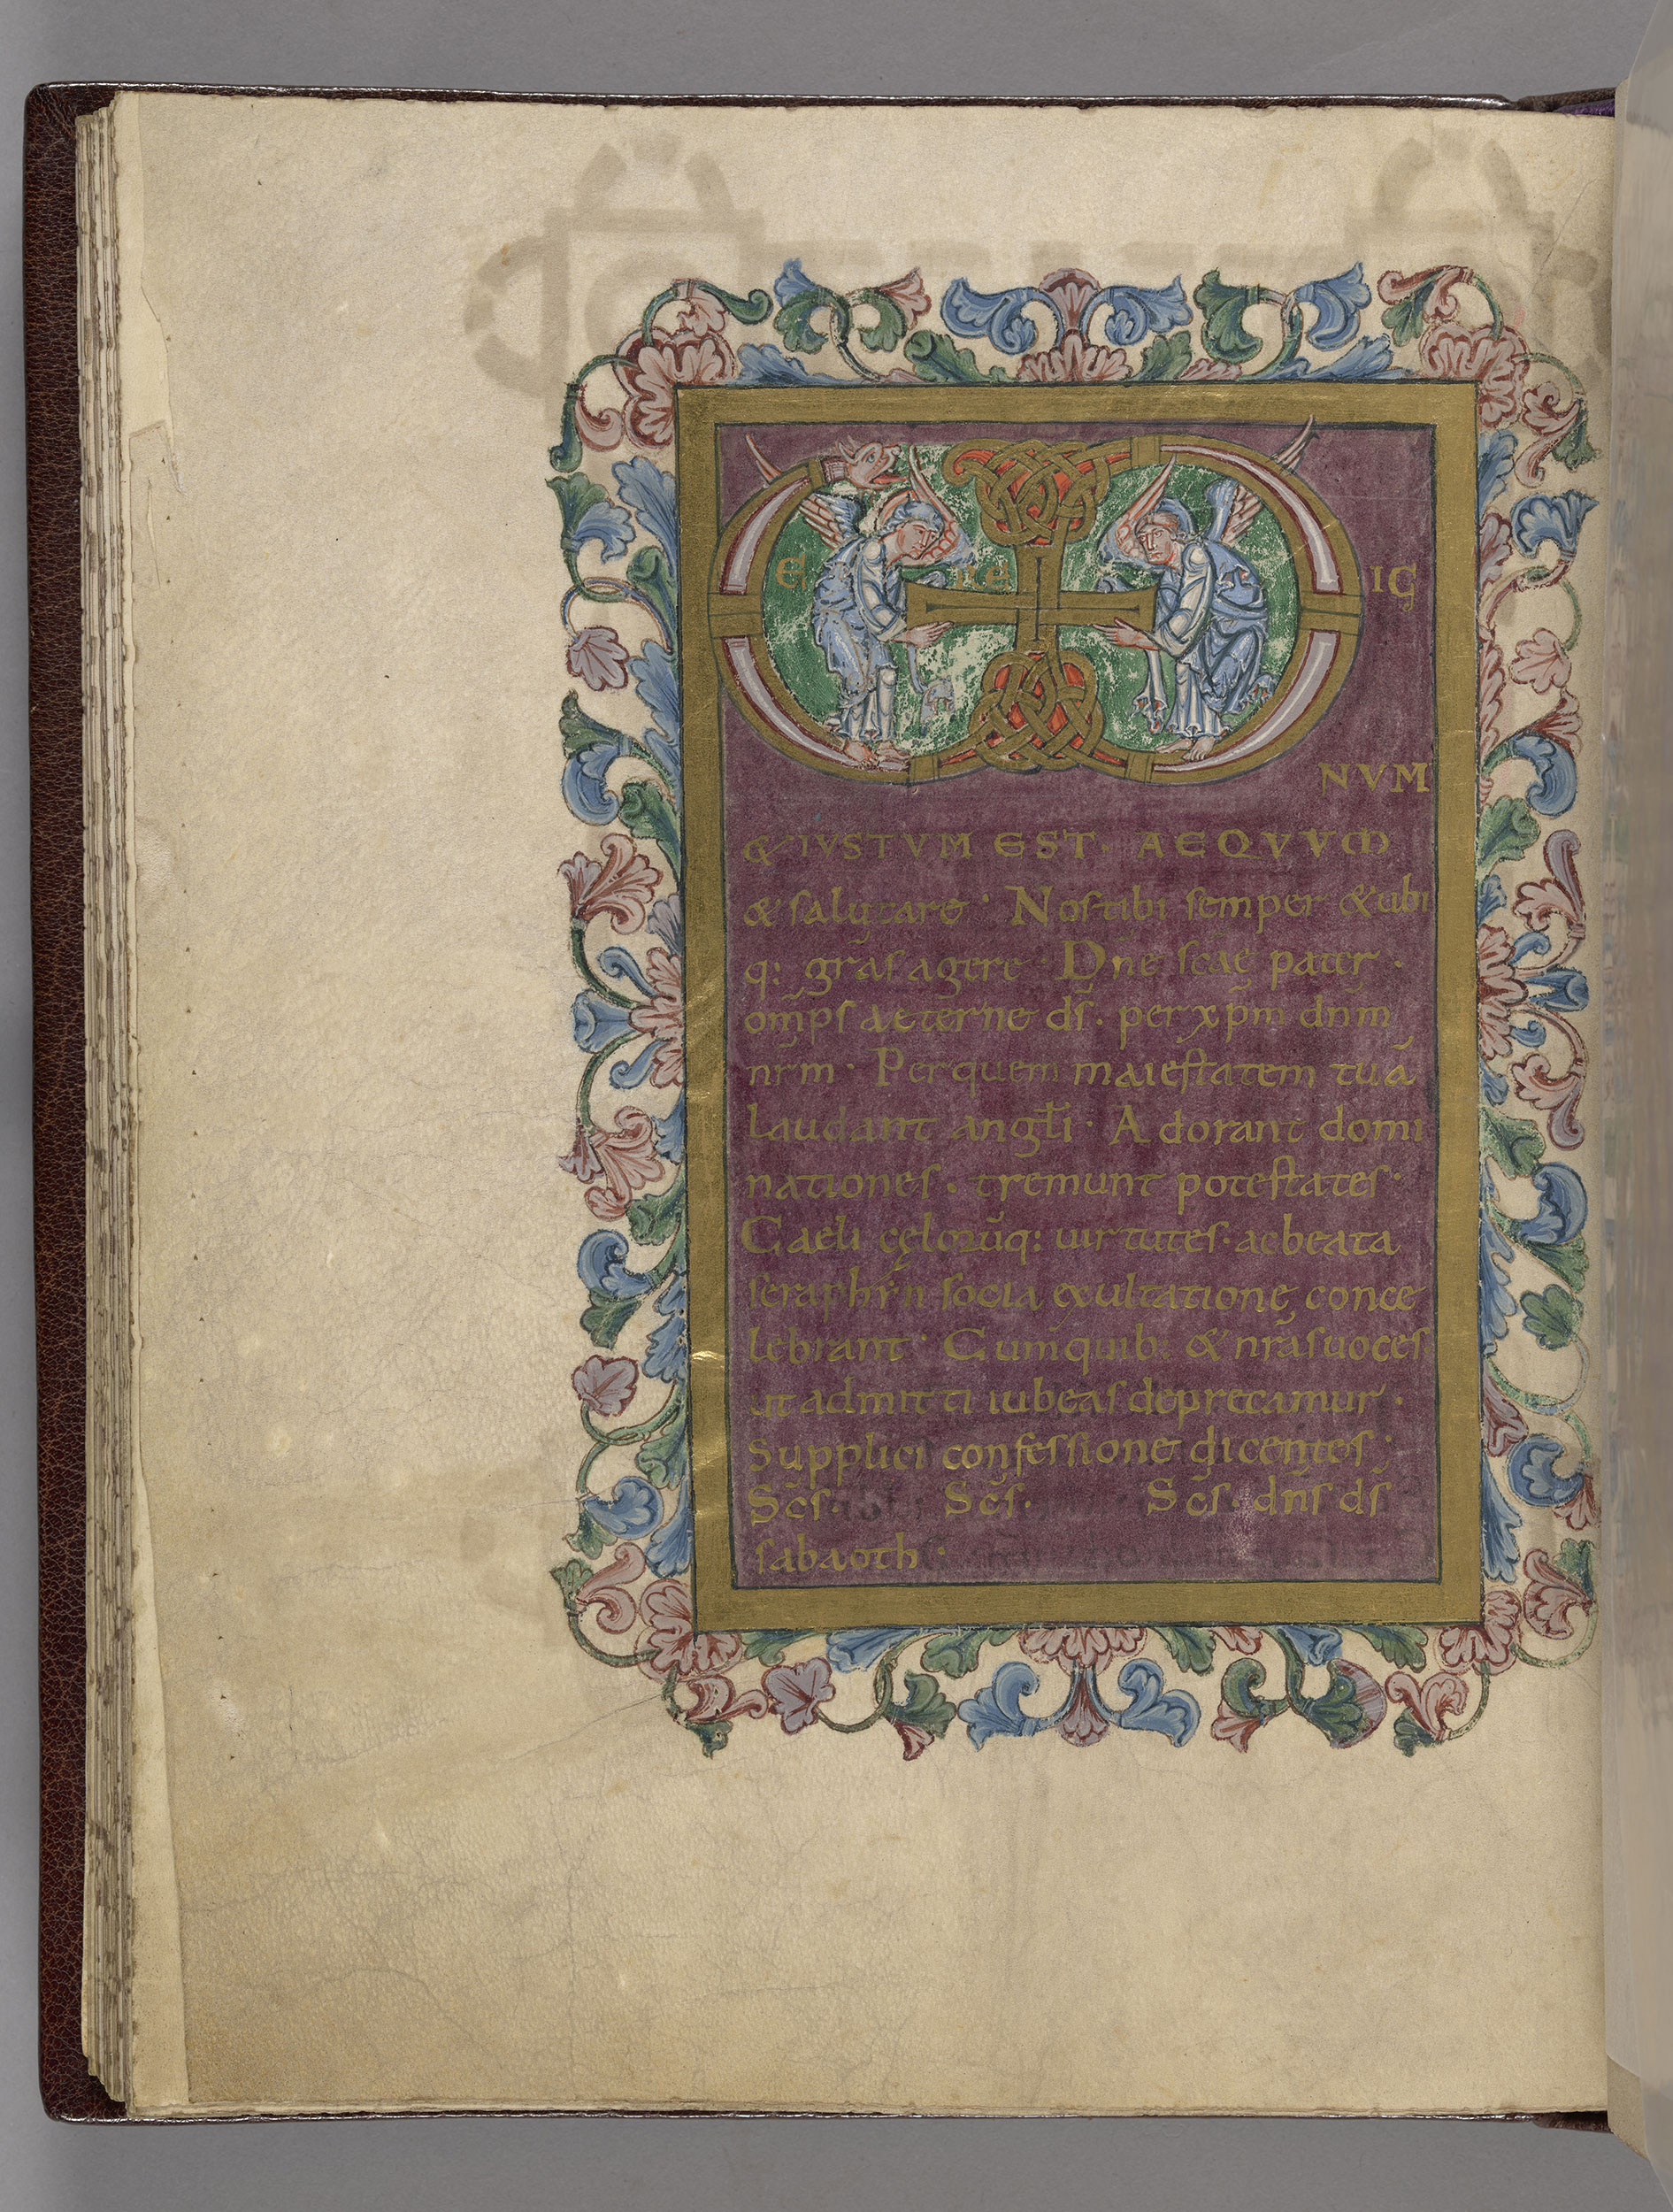 VERE DIG
NVM
& IVSTVM EST· AEQVVM
& salutare· Nos tibi semper & ubi
q: gr̄as agere· Dn̄e sc̄ae pater·
om̄ps aeterne ds̄· per xp̄m dn̄m
nr̄m· Per quem maiestatem tuā
laudant angl̄i· Adorant domi
nationes· tremunt potestates·
Caeli cęlorūq: uirtutes· ac beata
seraphyn socia exultatione conce
lebrant· Cum quib: & nr̄as uoces
ut admitti iubeas deprecamur·
Supplici confessione dicentes;
Sc̄s· Sc̄s· Sc̄s· dn̄s ds̄
sabaoth·